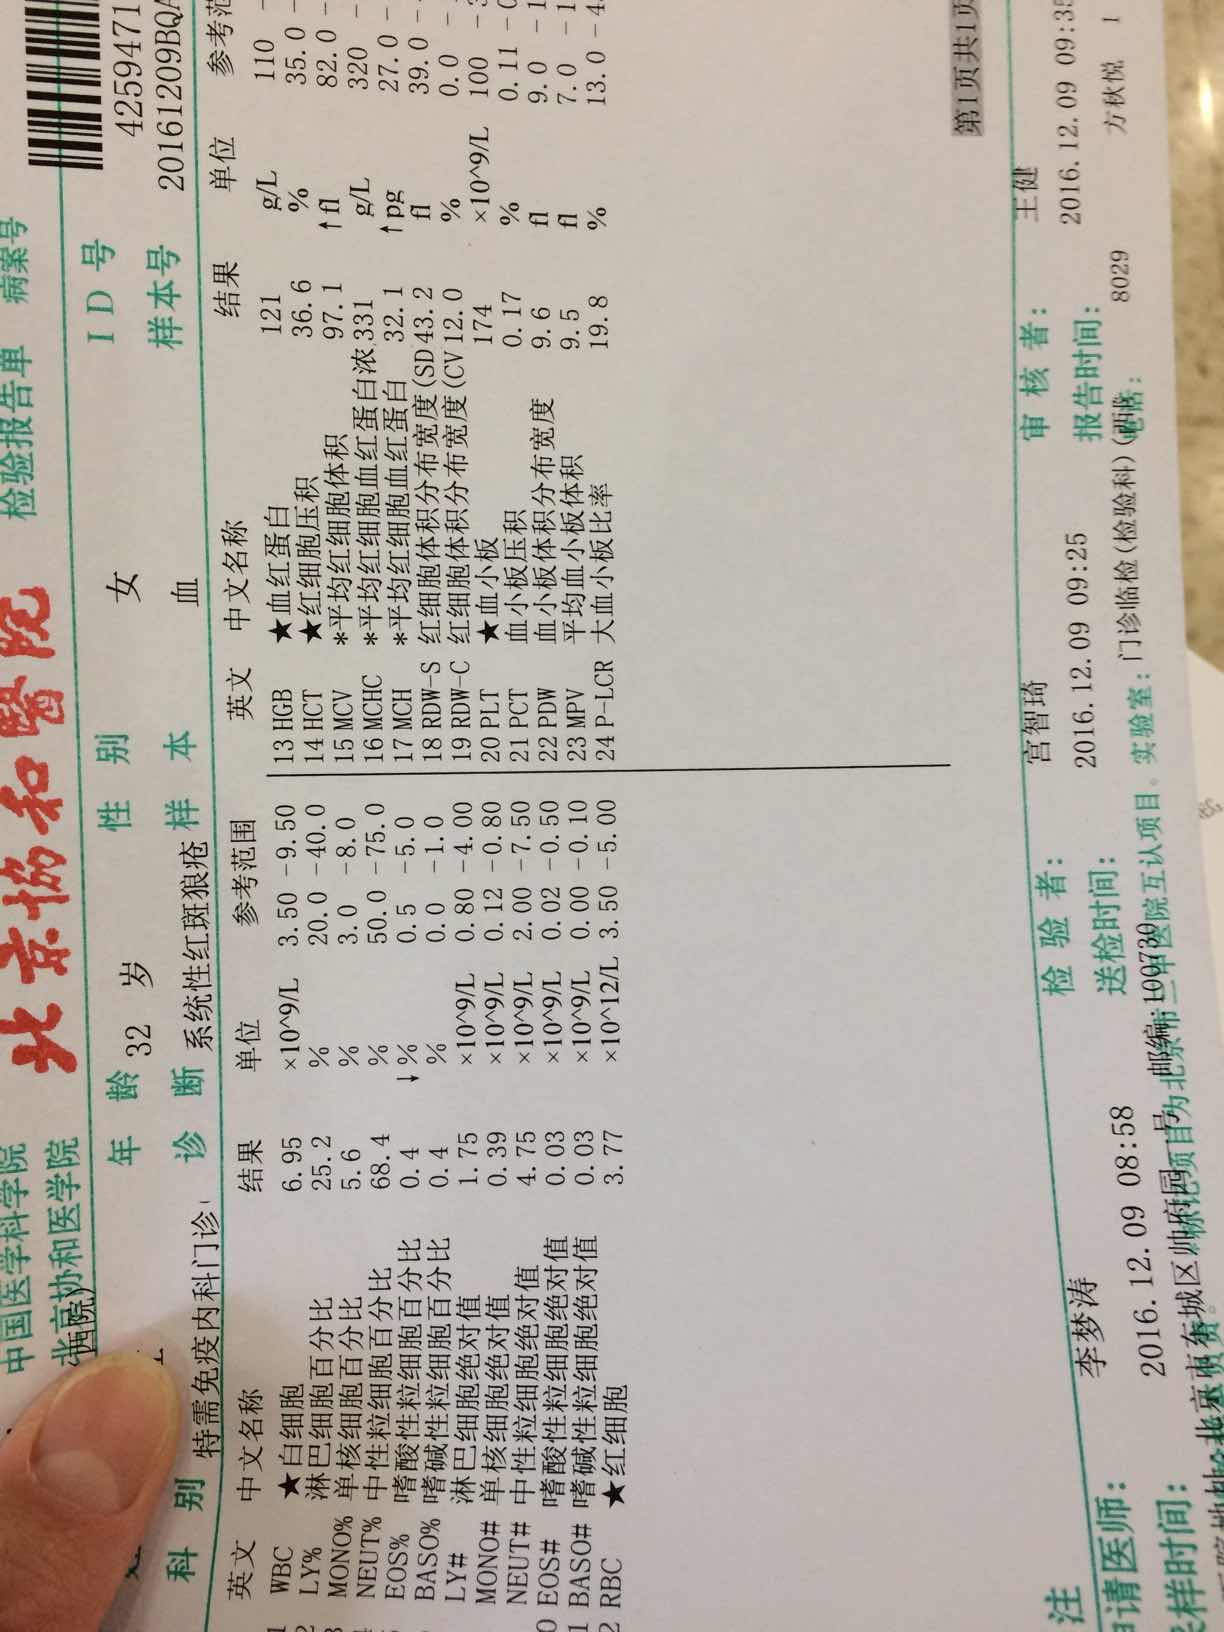 中国医学科学院
北京协和医学院
北京协和醫院
检验报告单
病案号
(西院)
年 龄 32 岁
性 别 女
ID号 4259471
科 别 特需免疫内科门诊(
诊 断 系统性红斑狼疮
样 本 血
样本号 20161209BQA
英文 中文名称 结果 单位 参考范围
WBC ★白细胞 6.95 ×10^9/L 3.50 -9.50
LY% 淋巴细胞百分比 25.2 % 20.0 -40.0
MONO% 单核细胞百分比 5.6 % 3.0 -8.0
NEUT% 中性粒细胞百分比 68.4 % 50.0 -75.0
EOS% 嗜酸性粒细胞百分比 0.4 ↓% 0.5 -5.0
BASO% 嗜碱性粒细胞百分比 0.4 % 0.0 -1.0
LY# 淋巴细胞绝对值 1.75 ×10^9/L 0.80 -4.00
MONO# 单核细胞绝对值 0.39 ×10^9/L 0.12 -0.80
NEUT# 中性粒细胞绝对值 4.75 ×10^9/L 2.00 -7.50
0 EOS# 嗜酸性粒细胞绝对值 0.03 ×10^9/L 0.02 -0.50
1 BASO# 嗜碱性粒细胞绝对值 0.03 ×10^9/L 0.00 -0.10
2 RBC ★红细胞 3.77 ×10^12/L 3.50 -5.00
英文 中文名称 结果 单位 参考范
13 HGB ★血红蛋白 121 g/L 110 -
14 HCT ★红细胞压积 36.6 % 35.0 -
15 MCV *平均红细胞体积 97.1 ↑fl 82.0 -
16 MCHC *平均红细胞血红蛋白浓 331 g/L 320 -
17 MCH *平均红细胞血红蛋白 32.1 ↑pg 27.0 -
18 RDW-S 红细胞体积分布宽度(SD 43.2 fl 39.0 -
19 RDW-C 红细胞体积分布宽度(CV 12.0 % 0.0 -
20 PLT ★血小板 174 ×10^9/L 100 -
21 PCT 血小板压积 0.17 % 0.11 -
22 PDW 血小板体积分布宽度 9.6 fl 9.0 -
23 MPV 平均血小板体积 9.5 fl 7.0 -
24 P-LCR 大血小板比率 19.8 % 13.0 -
第1页共1页
注
申请医师: 李梦涛
检 验 者: 宫智琦
审 核 者: 王健
采样时间: 2016.12.09 08:58
送检时间: 2016.12.09 09:25
报告时间: 2016.12.09 09:35
北京市东城区帅府园一号
邮编:100730
为北京市三甲医院互认项目。实验室:
门诊临检(检验科)(西
8029
方秋悦 1